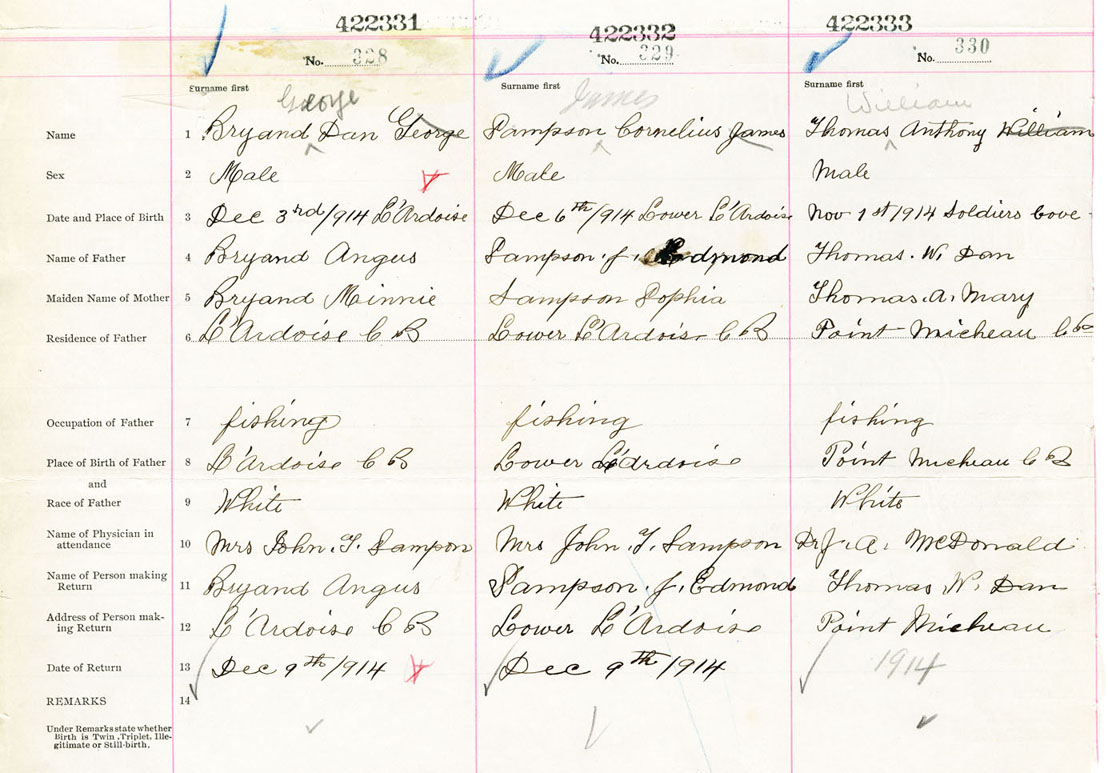 422331 422332 422333
No. 328 No. 329 No. 330
Surname first Surname first Surname first
George James William
Name 1 Bryand Dan George Sampson Cornelius James Thomas Anthony William
Sex 2 Male Male Male
Date and Place of Birth 3 Dec 3rd/1914 L'Ardoise Dec 6th/1914 Lower L'Ardoise Nov 1st/1914 Soldiers Cove
Name of Father 4 Bryand Angus Sampson. J. Edmond Thomas. W. Dan
Maiden Name of Mother 5 Bryand Minnie Sampson Sophia Thomas. A. Mary
Residence of Father 6 L'Ardoise C B Lower L'Ardoise C B Point Micheau C B
Occupation of Father 7 fishing fishing fishing
Place of Birth of Father 8 L'Ardoise C B Lower L'Ardoise Point Micheau C B
and
Race of Father 9 White White White
Name of Physician in
attendance 10 Mrs John. T. Sampson Mrs John. T. Sampson Dr J. A. McDonald
Name of Person making
Return 11 Bryand Angus Sampson. J. Edmond Thomas W. Dan
Address of Person mak-
ing Return 12 L'Ardoise C B Lower L'Ardoise Point Micheau
Date of Return 13 Dec 9th/1914 Dec 9th/1914 1914
REMARKS 14
Under Remarks state whether
Birth is Twin, Triplet, Ille-
gitimate or Still-birth.